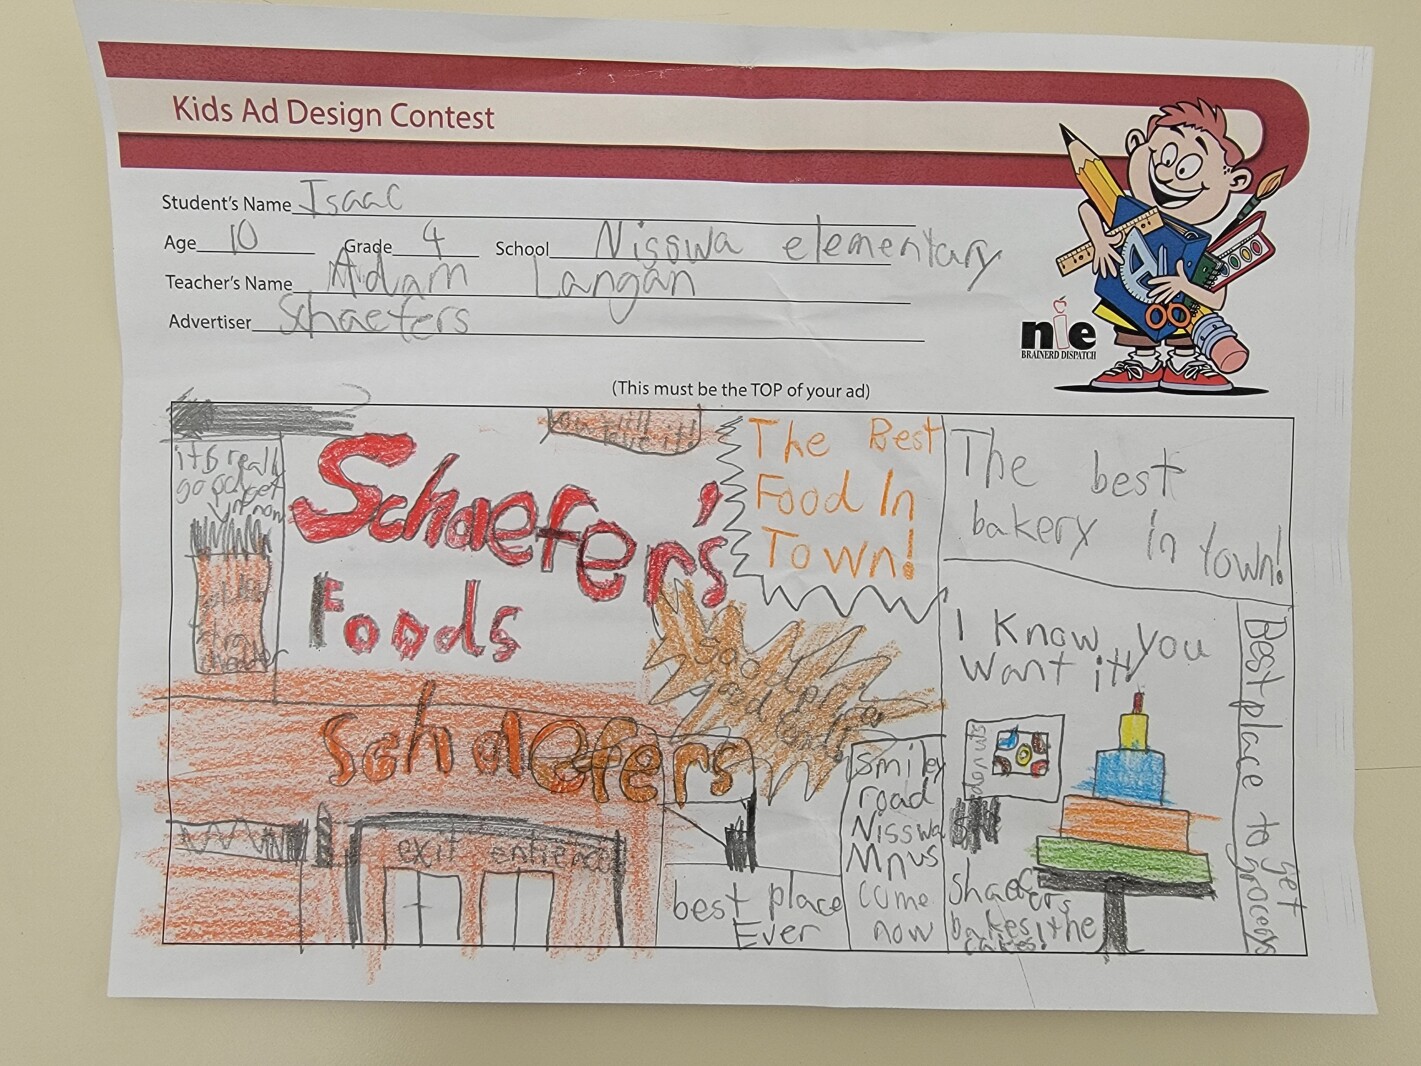 Kids Ad Design Contest
Student's Name Isaac
Age 10 Grade 4 School Nisswa elementary
Teacher's Name Adam Langan
Advertiser Schaefers
nie
BRAINERD DISPATCH
(This must be the TOP of your ad)
it's really
good get
Schaefer's
Foods
The Best
Food In
Town!
The best
bakery in town!
I Know you
want it!
Best place to get
groceos
Schaefers
exit entrience
best place
Ever
Smiley
road
Nisswa
Mnus
come
now
Shaefers
bakes the
cakes!